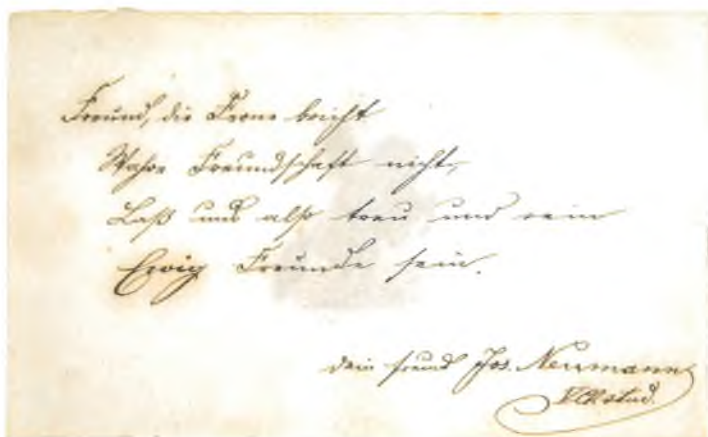 Freund, die Ferne bricht
Wahre Freundschaft nicht,
Laß uns also treu und rein
Ewig Freunde sein.
dein freund Jos. Neumann
stud.